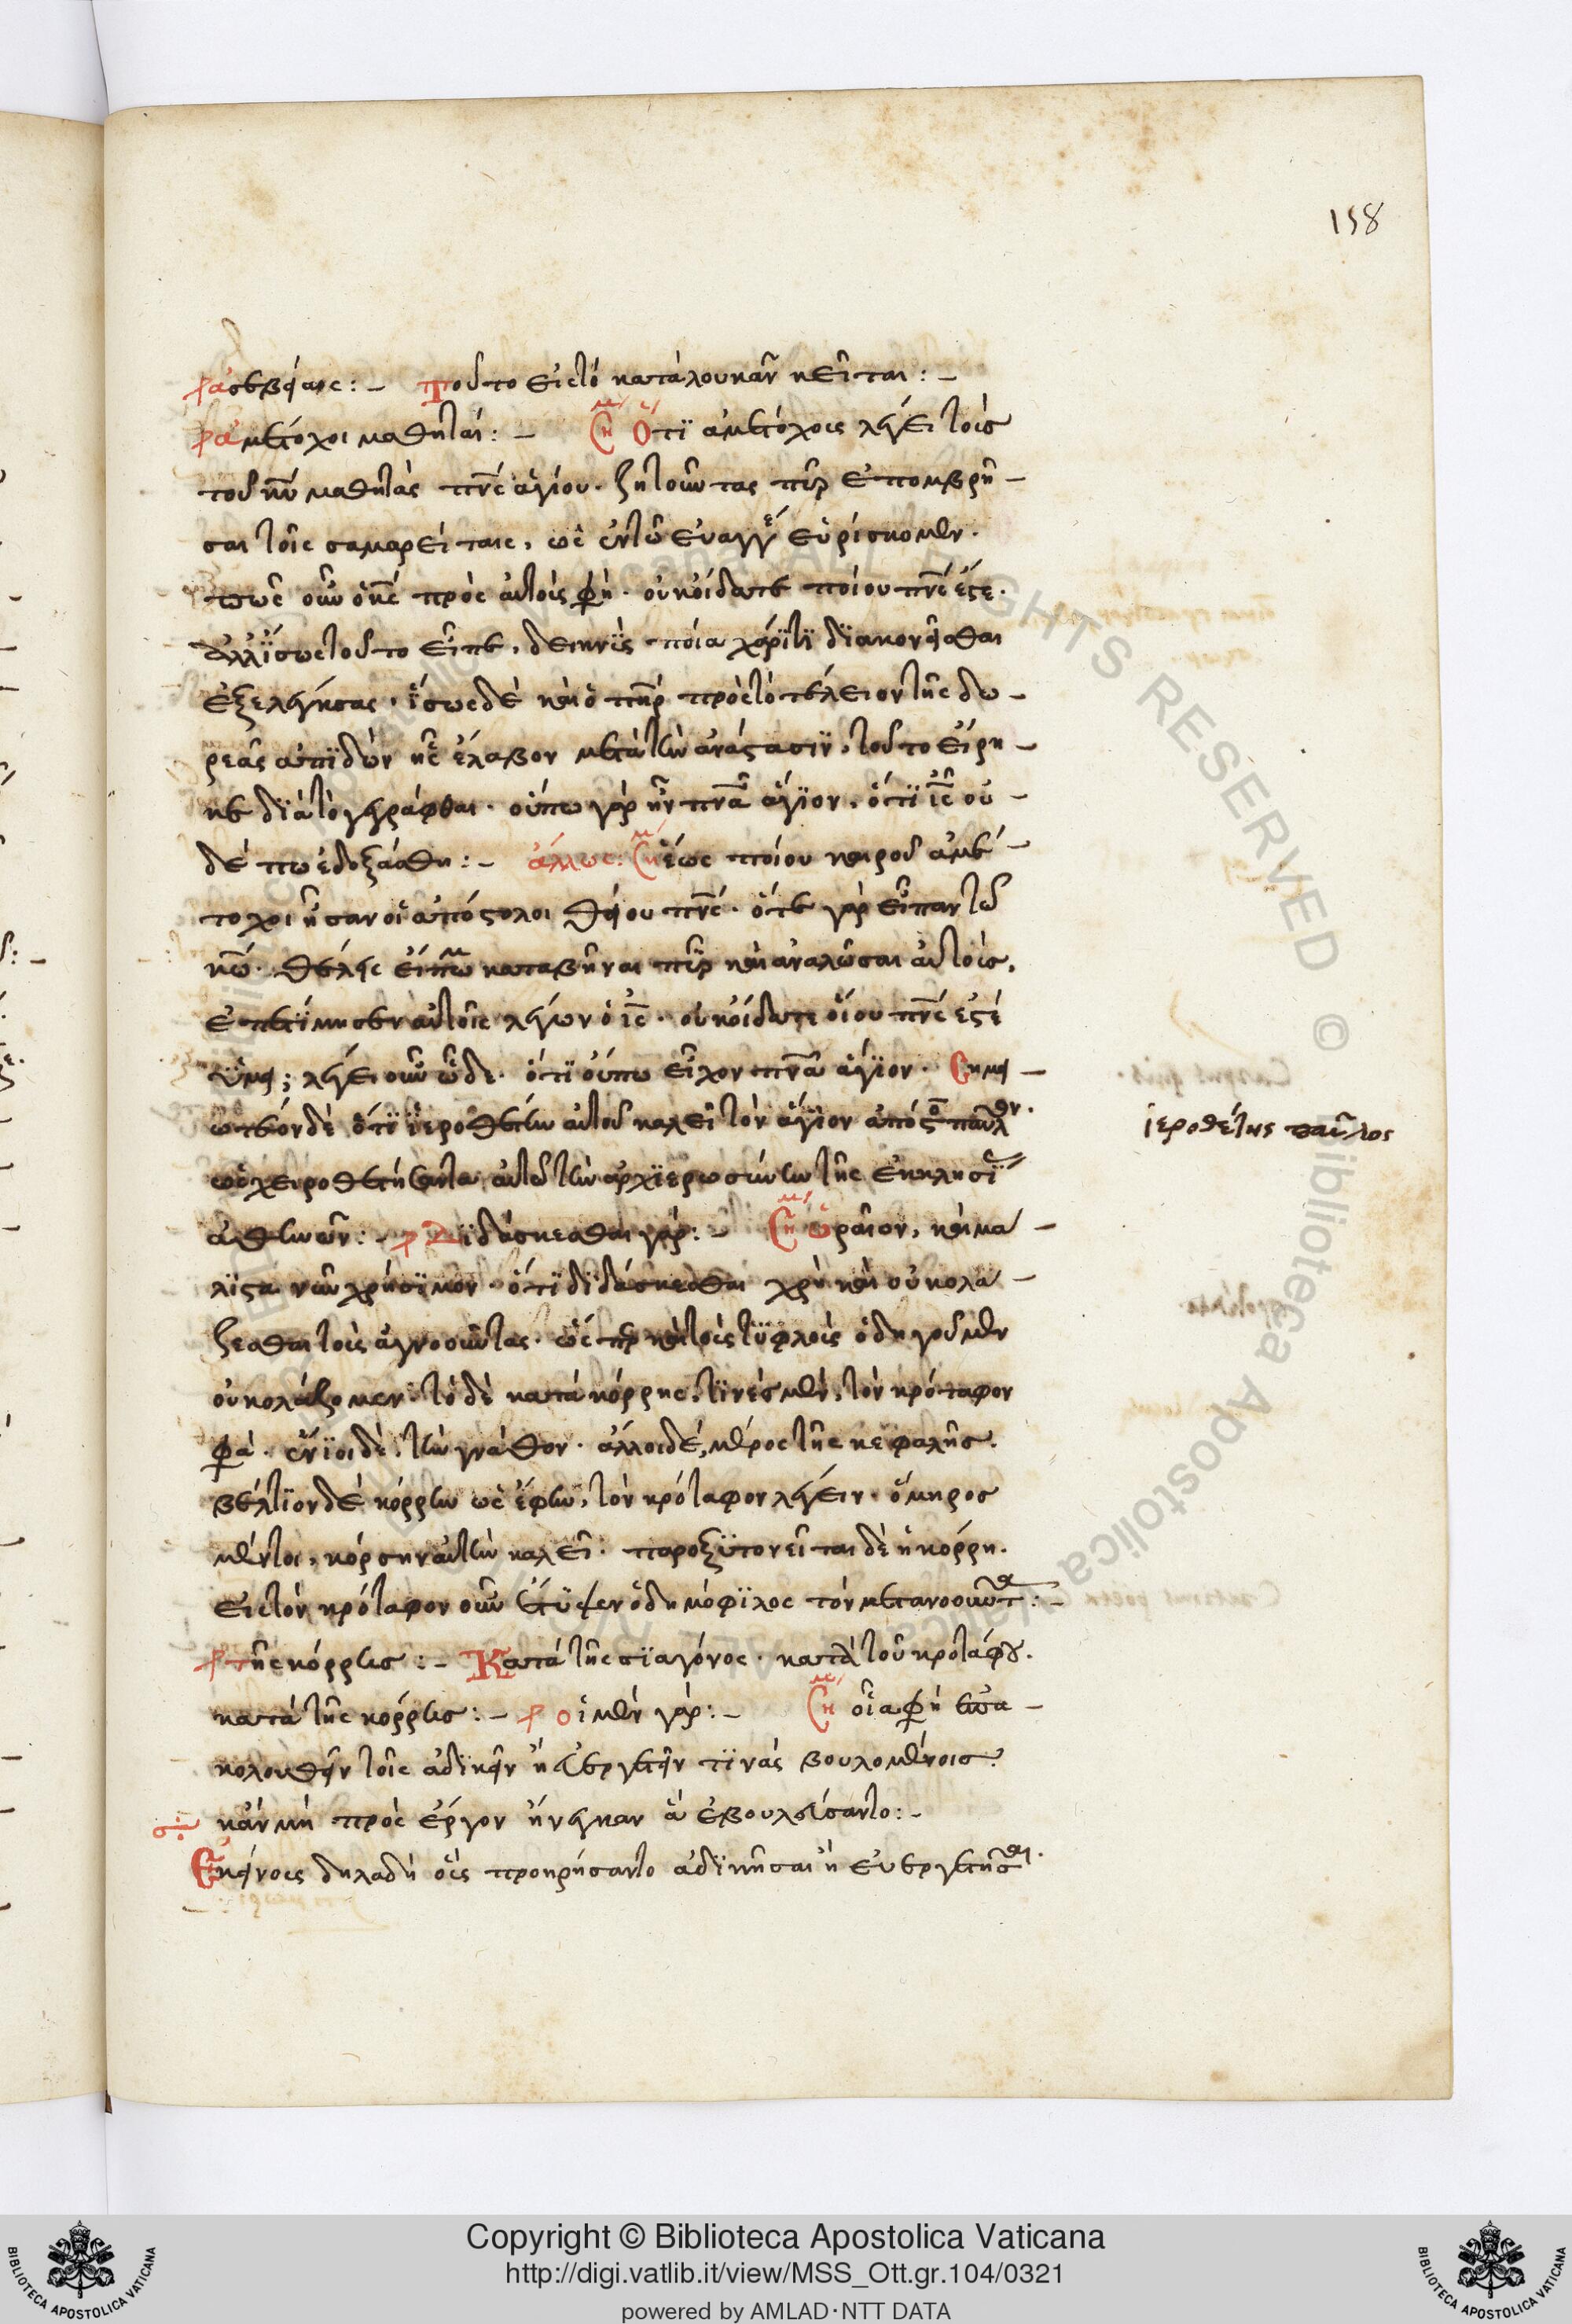 158
ἀσεβείας: - Τοῦτο εἰς τὸ κατὰ λουκᾶν κεῖται: -
ἀμέτοχοι μαθηταί: - Ση Ὅτι ἀμετόχους λέγει τοὺς
τοῦ κυ μαθητὰς πνς ἁγίου. ζητοῦντας πῦρ ἐπομβρῆ-
σαι τοῖς σαμαρείταις, ὡς ἐν τῶ εὐαγγε εὑρίσκομεν.
πῶς οὖν ὁ κς πρὸς αὐτοὺς φη. οὐκ οἴδατε ποίου πνς ἐστε.
ἀλλ' ἴσως τοῦτο εἶπε, δεικνὺς ποία χάριτι διακονεῖσθαι
ἐξελέγησας. ἴσως δὲ καὶ ὁ πηρ πρὸς τὸ τέλειον τῆς δω-
ρεᾶς ἀπιδὼν ἧς ἔλαβον μετὰ τὴν ἀνάστασιν, τοῦτο εἴρη-
κε διὰ τὸ γεγράφθαι. οὔπω γὰρ ἦν πνα ἅγιον, ὅτι ις οὐ-
δέπω ἐδοξάσθη: - ἄλλως: Ση ἕως ποίου καιροῦ ἀμέ-
τοχοι ἦσαν οἱ ἀπόστολοι θείου πνς. ὅτε γὰρ εἶπαν τῶ
κω. θέλεις εἴπωμ καταβῆναι πῦρ καὶ ἀναλῶσαι αὐτούς,
ἐπετίμησεν αὐτοῖς λέγων ὁ ις. οὐκ οἴδατε οἵου πνς ἐστὲ
ὑμεῖ; λέγει οὖν ὧδε. ὅτι οὔπω εἶχον πνα ἅγιον. Σημει-
ωτέον δὲ ὅτι ἱεροθέτην αὐτοῦ καλεῖ τὸν ἅγιον ἀπόστο παῦλον.
ἱεροθέτης παῦλος
ὡς χειροθετήσαντα αὐτῶ τὴν ἀρχιερωσύνην τῆς ἐκκλησί
ἀθηνῶν: - Διδάσκεσθαι γάρ: - Ση ὡραῖον, καὶ μά-
λιστα νῦν χρήσιμον. ὅτι διδάσκεσθαι χρὴ καὶ οὐ κολά-
ζεσθαι τοὺς ἀγνοοῦντας. ὥς περ καὶ τοὺς τυφλοὺς ὁδηγοῦμεν
οὐ κολάζομεν. τὸ δὲ κατὰ κόρρης, τινὲς μὲν, τὸν κρόταφον
φα. ἔνιοι δὲ, τὴν γνάθον. ἄλλοι δὲ, μέρος τῆς κεφαλῆς.
βέλτιον δὲ κόρρην ὡς ἔφην, τὸν κρόταφον λέγειν. ὅμηρος
μέντοι, κόρσην αὐτὴν καλεῖ. παροξυτονεῖται δὲ ἡ κόρρη.
εἰς τὸν κρόταφον οὖν ἔτυψεν ὁ δημόφιλος τὸν μετανοοῦντα: -
τῆς κόρρης: - Κατὰ τῆς σιαγόνος. κατὰ τοῦ κροτάφου.
κατὰ τῆς κόρρης: - οἱ μὲν γάρ: - Ση οἷα φη ἐπα-
κολουθεῖν τοῖς ἀδικεῖν ἢ εὐεργετεῖν τινὰς βουλομένοις.
κἂν μὴ πρὸς ἔργον ἤνεγκαν ἃ ἐβουλεύσαντο: -
Ἐκείνοις δηλαδὴ οὓς προηρήσαντο ἀδικῆσαι ἢ εὐεργετῆσαι.
Copyright © Biblioteca Apostolica Vaticana
http://digi.vatlib.it/view/MSS_Ott.gr.104/0321
powered by AMLAD·NTT DATA
BIBLIOTECA APOSTOLICA VATICANA
BIBLIOTECA APOSTOLICA VATICANA